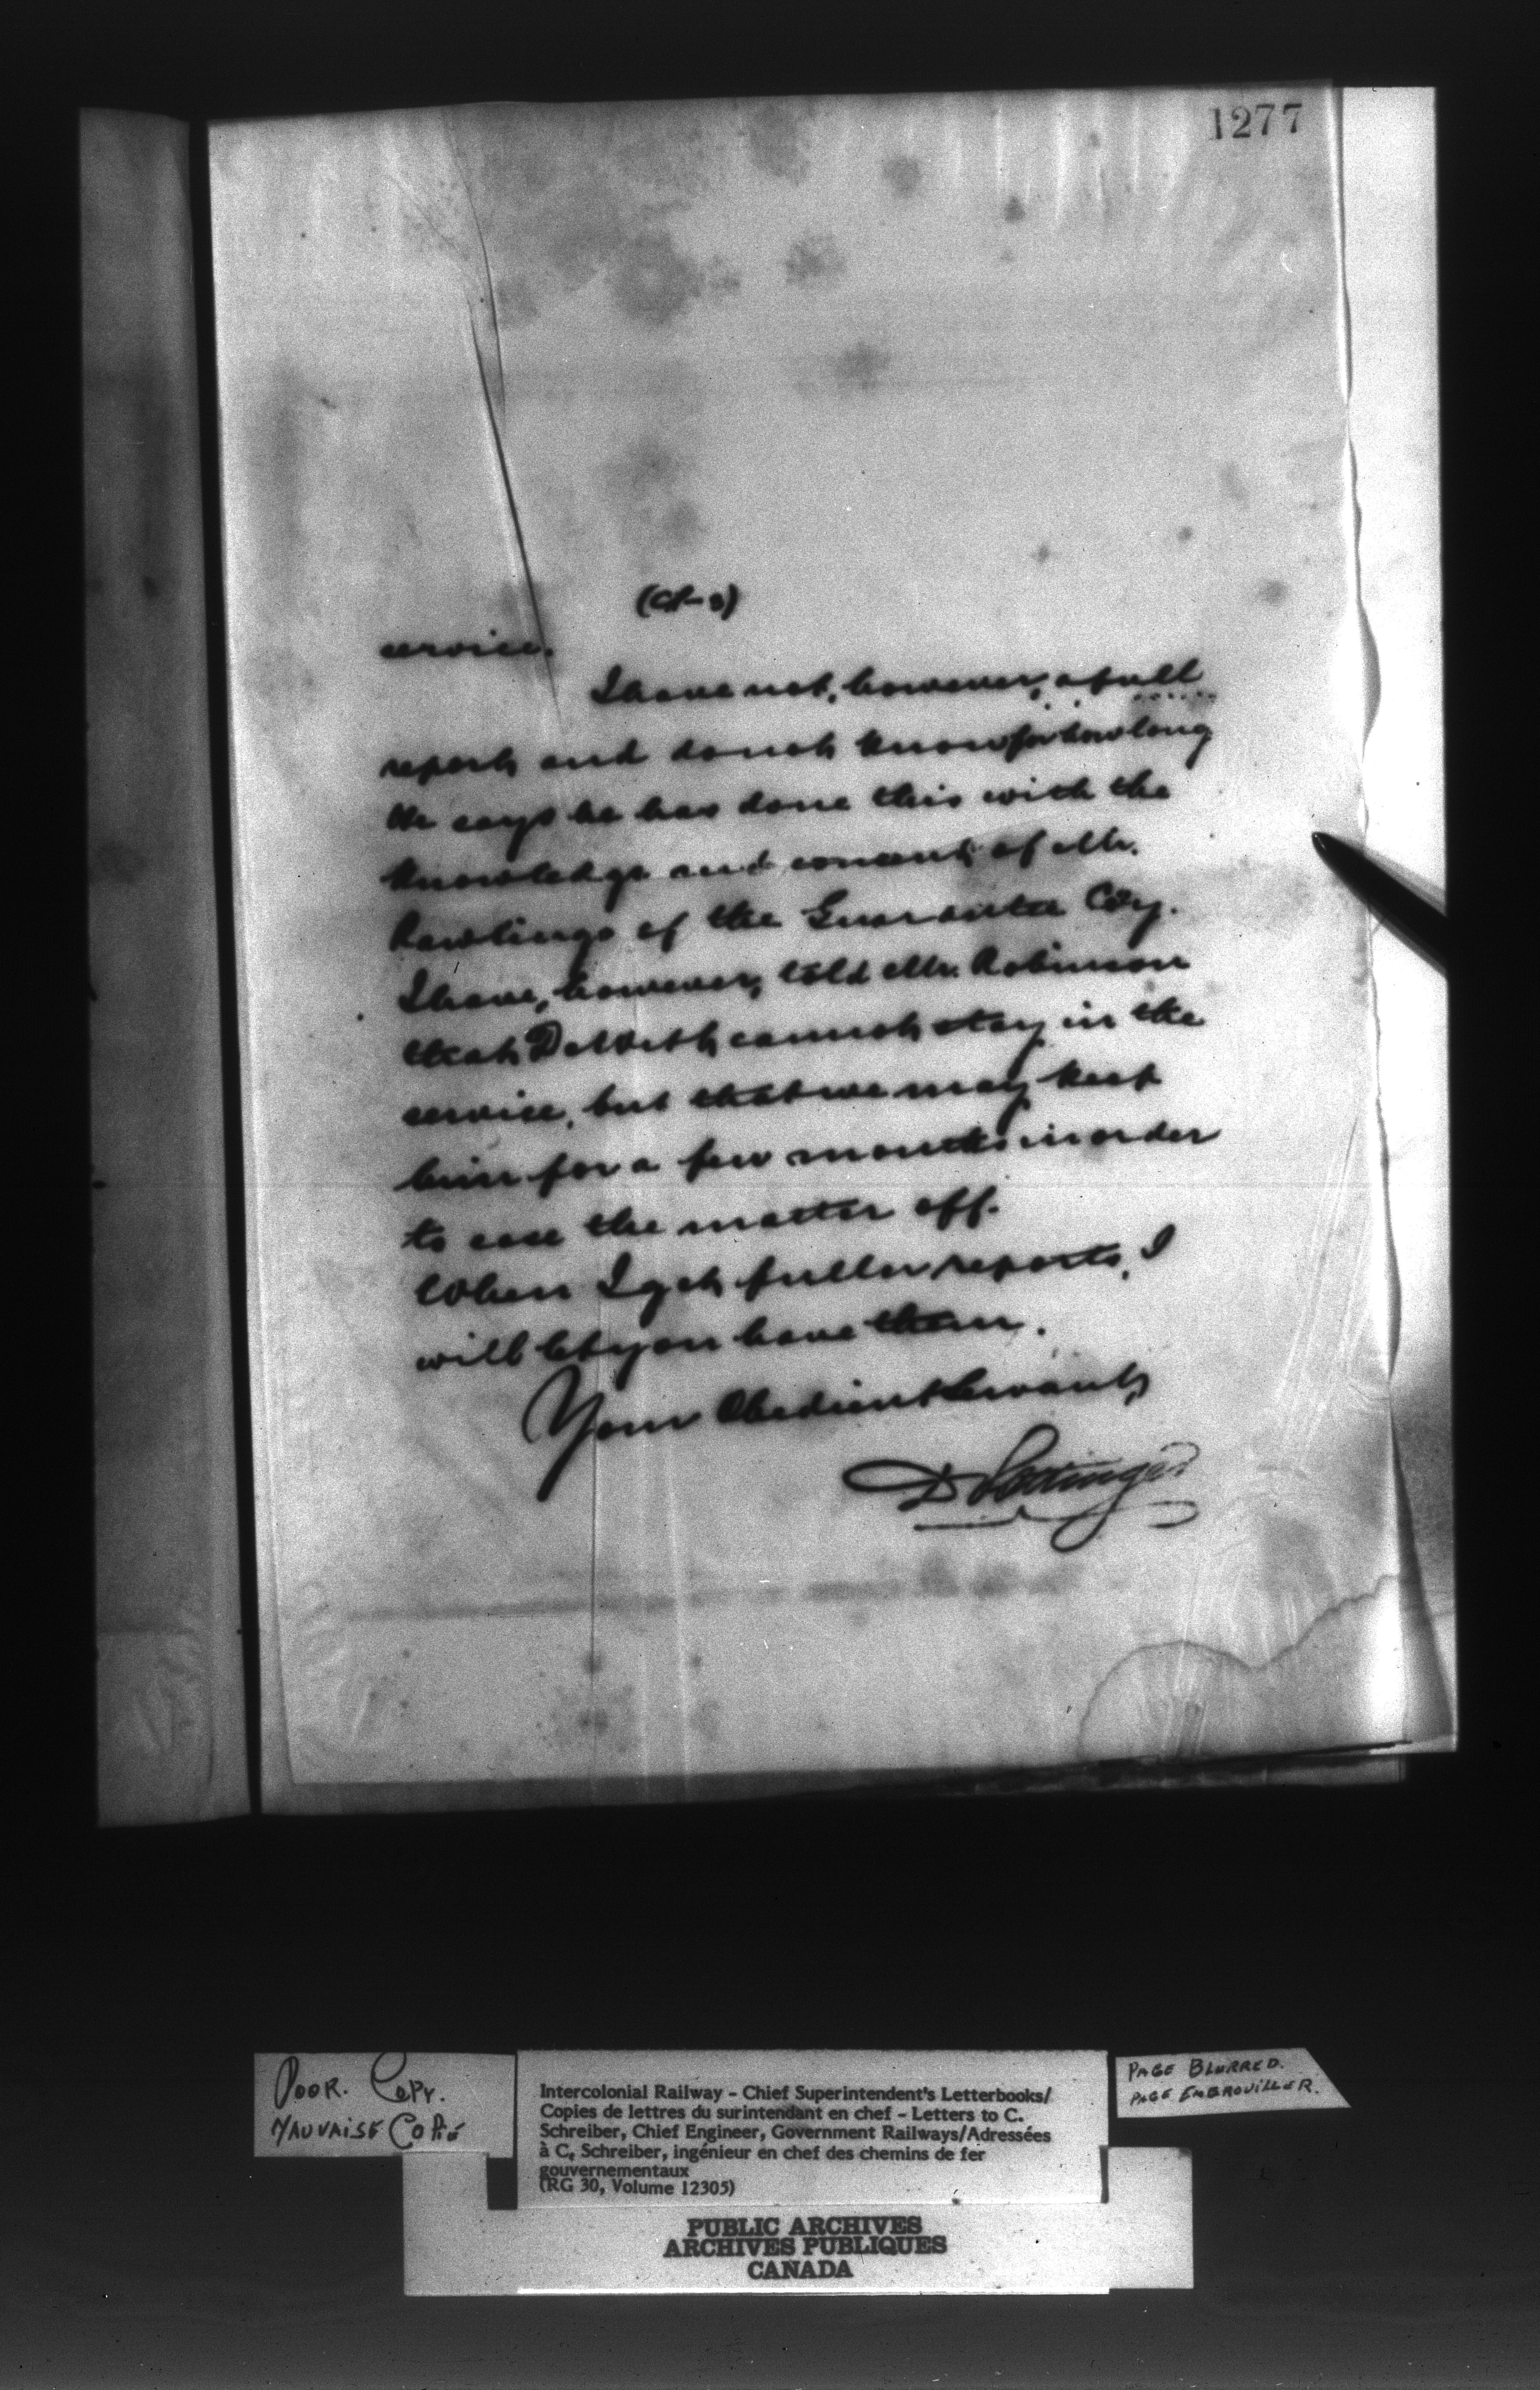 1277
service.
I have not, however, a full
report, and do not know for how long
He says he has done this with the
knowledge and consent, of Mr.
Rawlings of the Guarantee Coy.
I have, however, told Mr. Robinson
that DeWitt, cannot stay in the
service, but that we may keep
him for a few months in order
to ease the matter off.
When I get fuller reports, I
will let you have them.
Your Obedient Servant,
D Pottinger
POOR. COPY.
MAUVAISE COPIE
Intercolonial Railway - Chief Superintendent's Letterbooks/
Copies de lettres du surintendant en chef - Letters to C.
Schreiber, Chief Engineer, Government Railways/Adressées
à C. Schreiber, ingénieur en chef des chemins de fer
gouvernementaux
(RG 30, Volume 12305)
PAGE BLURRED.
PAGE EMBROUILLER.
PUBLIC ARCHIVES
ARCHIVES PUBLIQUES
CANADA